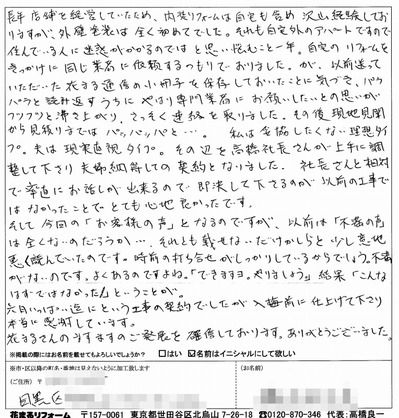 長年店舗を経営していたため、内装リフォームは自宅も含め沢山経験してお
りますが、外壁塗装は全く初めてでした。それも自宅外のアパートですので
住んでいる人に迷惑がかかるのではと思い悩むこと一年。自宅のリフォームを
きっかけに同じ業者に依頼するつもりでおりました。が、以前送って
いただいた花まる通信の小冊子を保存しておいたことに気づき、パラ
パラと読み返すうちにやはり専門業者にお願いしたいとの思いが
フツフツと沸き上がり、さっそく連絡を取りました。その後現地見聞
から見積り までパッパッパと…。 私は妥協したくない理想タイ
プ。夫は現実直視タイプ。その辺を高橋社長さんが上手に調
整して下さり夫婦納得しての契約となりました。 社長さんと相対
で率直にお話しが出来るので即決して下さるのが以前の工事で
はなかったことでとても心地良かったです。
そして今回の「お客様の声」となるのですが、以前は「不満の声
は全くないのだろうか…、それとも載せないだけかしらと少し意地
悪く読んでいたのです。事前の打ち合せがしっかりしているからでしょう。不満
がないのです。よくあるのですよね。「できますヨ。やりましょう」結果「こんな
はずではなかった」ということが。
六月いっぱい迄にという工事の契約でしたが入梅前に仕上げて下さり
本当に感謝しています。
花まるさんのますますのご発展を確信しております。ありがとうございました。
※掲載の際にはお名前を載せてもよろしいでしょうか？ □はい ☑名前はイニシャルにして欲しい
※市・区以降の町名・番地は見えないように加工致します
（ご住所）〒
（お名前）
目黒区
花まるリフォーム 〒157-0061 東京都世田谷区北烏山7-26-18 ☎0120-870-346 代表：高橋良一